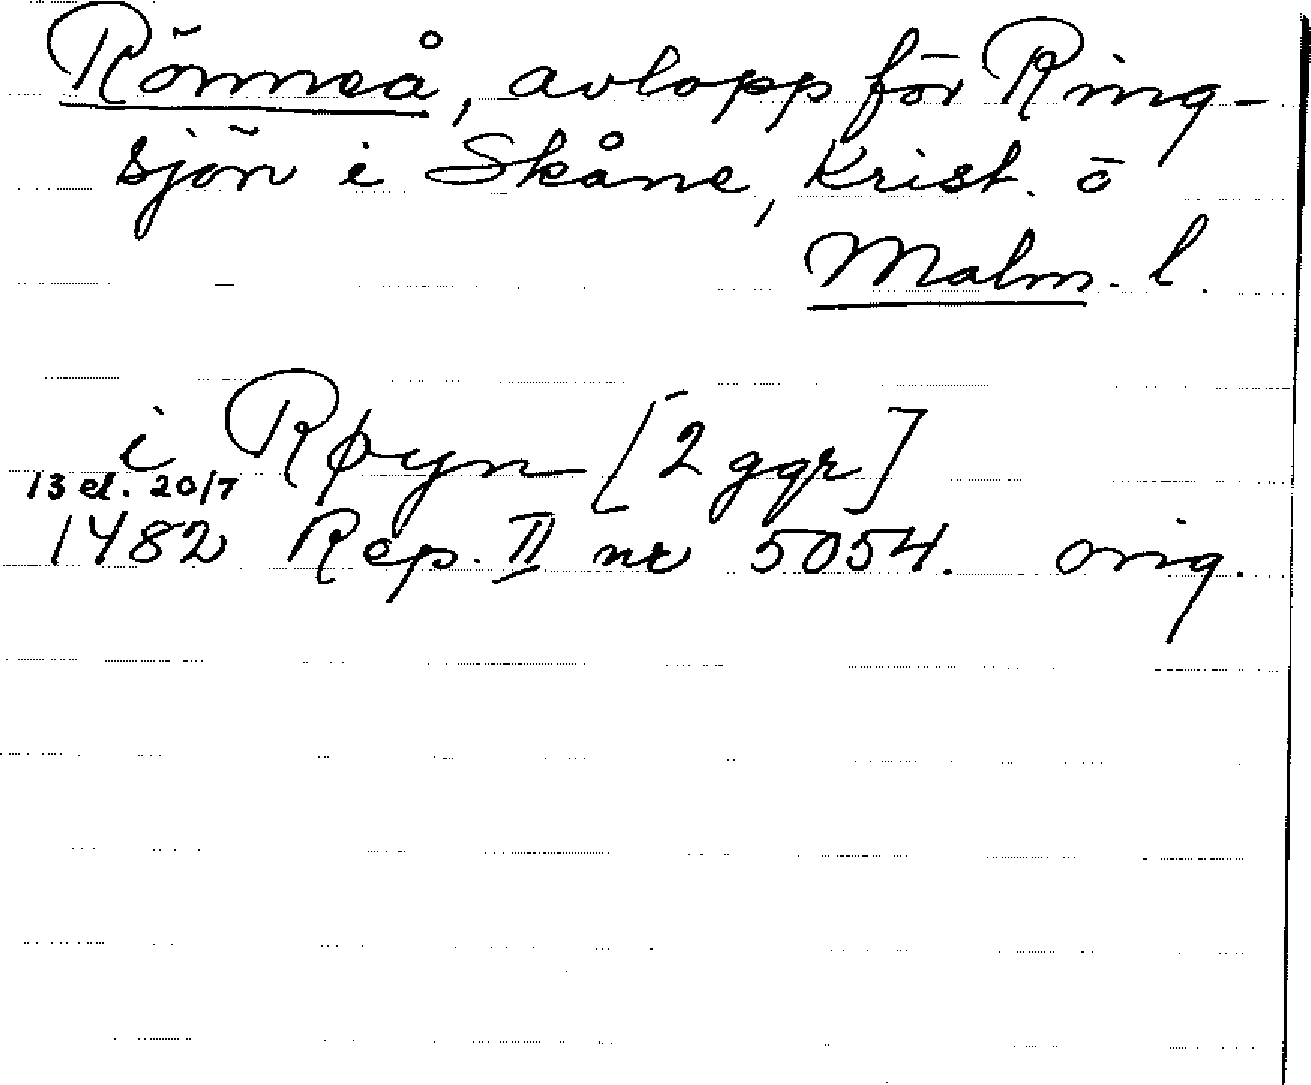 Rönneå, avlopp för Ring-
sjön i Skåne, Krist. o
Malm. l.
i Røyn [2 ggr]
13 el. 20/7
1482 Rep. II nr 5054. orig.